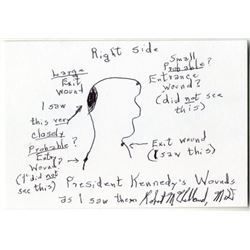 Right Side
Large
Exit
Wound
I saw
this very
closely
Probable?
Entry
Wound?
(I did not
see this)
Small
Probable?
Entrance
Wound?
(did not see
this)
Exit wound
(I saw this)
President Kennedy's Wounds
as I saw them Robert M McClelland, MD